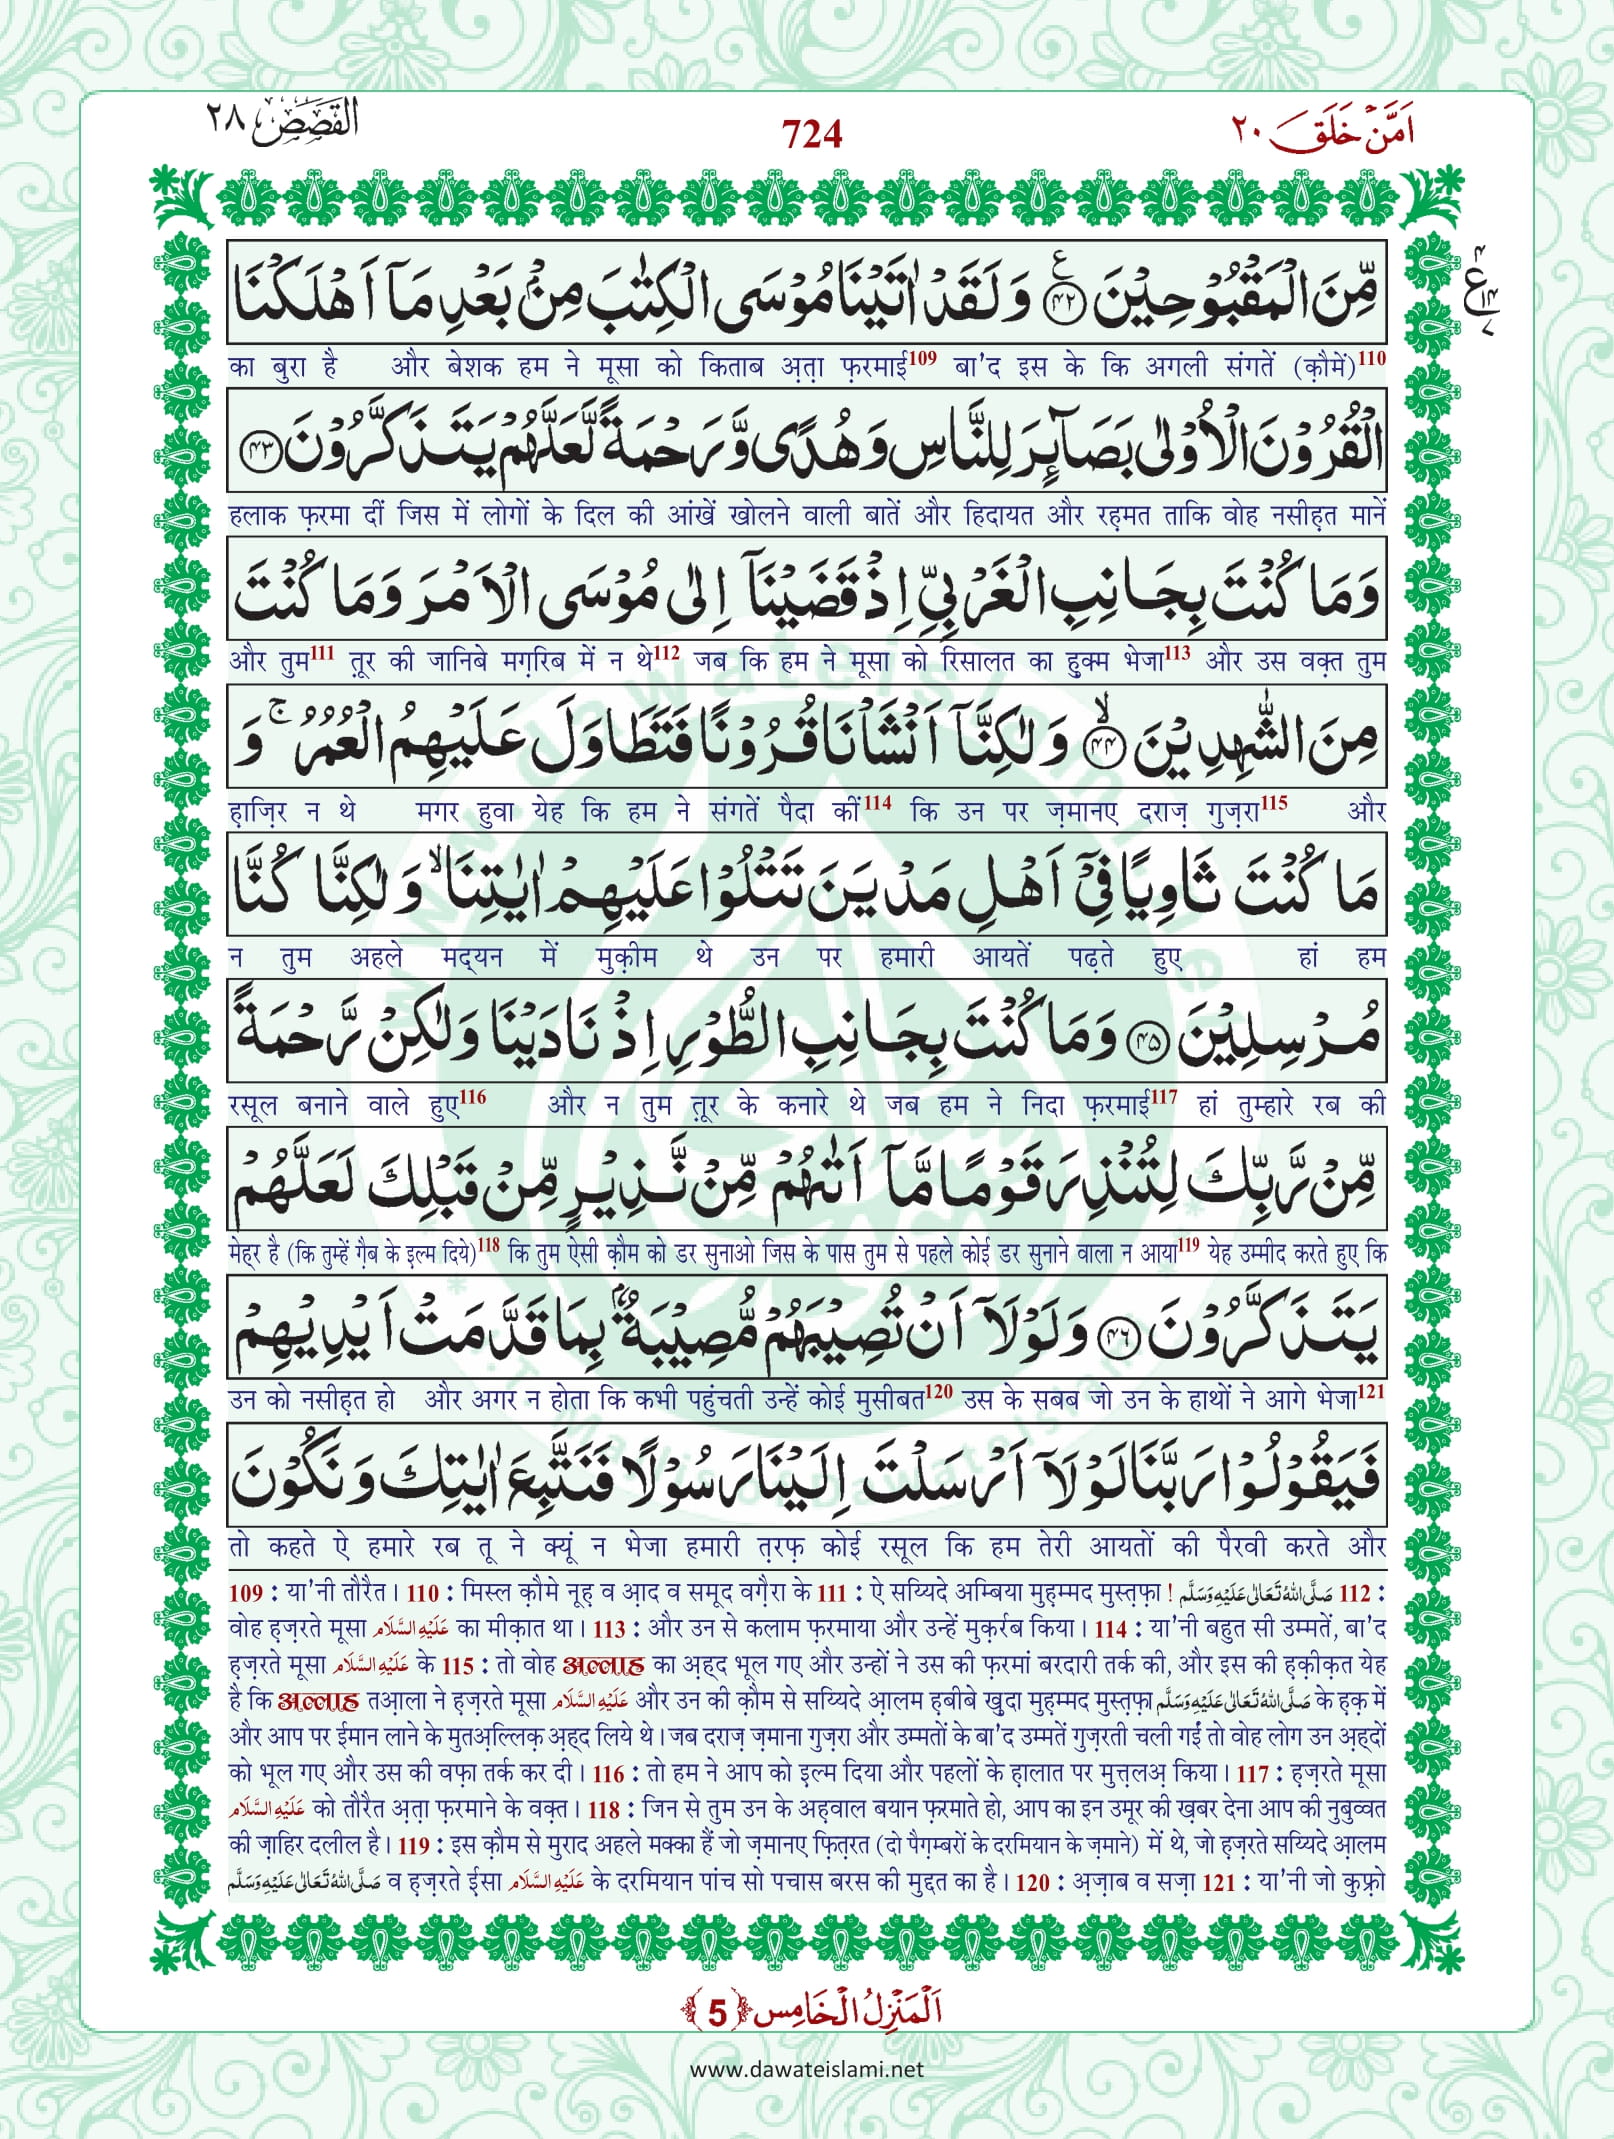 اَمَّنْ خَلَقَ ٢٠
724
الْقَصَص ٢٨
مِّنَ الْمَقْبُوْحِيْنَ ﴿۴۲﴾ وَ لَقَدْ اٰتَيْنَا مُوْسَى الْكِتٰبَ مِنْۢ بَعْدِ مَاۤ اَهْلَكْنَا
का बुरा है और बेशक हम ने मूसा को किताब अ़त़ा फ़रमाई109 बा'द इस के कि अगली संगतें (क़ौमें)110
الْقُرُوْنَ الْاُوْلٰى بَصَآئِرَ لِلنَّاسِ وَ هُدًى وَّ رَحْمَةً لَّعَلَّهُمْ يَتَذَكَّرُوْنَ ﴿۴۳﴾
हलाक फ़रमा दीं जिस में लोगों के दिल की आंखें खोलने वाली बातें और हिदायत और रह़मत ताकि वोह नसीह़त मानें
وَ مَا كُنْتَ بِجَانِبِ الْغَرْبِيِّ اِذْ قَضَيْنَاۤ اِلٰى مُوْسَى الْاَمْرَ وَ مَا كُنْتَ
और तुम111 त़ूर की जानिबे मग़रिब में न थे112 जब कि हम ने मूसा को रिसालत का हु़क्म भेजा113 और उस वक़्त तुम
مِنَ الشّٰهِدِيْنَ ﴿ۙ۴۴﴾ وَ لٰكِنَّاۤ اَنْشَاْنَا قُرُوْنًا فَتَطَاوَلَ عَلَيْهِمُ الْعُمُرُ ۚ وَ
ह़ाज़िर न थे मगर हुवा येह कि हम ने संगतें पैदा कीं114 कि उन पर ज़मानए दराज़ गुज़रा115 और
مَا كُنْتَ ثَاوِيًا فِيْۤ اَهْلِ مَدْيَنَ تَتْلُوْا عَلَيْهِمْ اٰيٰتِنَا ۙ وَ لٰكِنَّا كُنَّا
न तुम अहले मद्यन में मुक़ीम थे उन पर हमारी आयतें पढ़ते हुए हां हम
مُرْسِلِيْنَ ﴿۴۵﴾ وَ مَا كُنْتَ بِجَانِبِ الطُّوْرِ اِذْ نَادَيْنَا وَ لٰكِنْ رَّحْمَةً
रसूल बनाने वाले हुए116 और न तुम त़ूर के कनारे थे जब हम ने निदा फ़रमाई117 हां तुम्हारे रब की
مِّنْ رَّبِّكَ لِتُنْذِرَ قَوْمًا مَّاۤ اَتٰىهُمْ مِّنْ نَّذِيْرٍ مِّنْ قَبْلِكَ لَعَلَّهُمْ
मेह्र है (कि तुम्हें ग़ैब के इ़ल्म दिये)118 कि तुम ऐसी क़ौम को डर सुनाओ जिस के पास तुम से पहले कोई डर सुनाने वाला न आया119 येह उम्मीद करते हुए कि
يَتَذَكَّرُوْنَ ﴿۴۶﴾ وَ لَوْلَاۤ اَنْ تُصِيْبَهُمْ مُّصِيْبَةٌۢ بِمَا قَدَّمَتْ اَيْدِيْهِمْ
उन को नसीह़त हो और अगर न होता कि कभी पहुंचती उन्हें कोई मुसीबत120 उस के सबब जो उन के हाथों ने आगे भेजा121
فَيَقُوْلُوْا رَبَّنَا لَوْلَاۤ اَرْسَلْتَ اِلَيْنَا رَسُوْلًا فَنَتَّبِعَ اٰيٰتِكَ وَ نَكُوْنَ
तो कहते ऐ हमारे रब तू ने क्यूं न भेजा हमारी त़रफ़ कोई रसूल कि हम तेरी आयतों की पैरवी करते और
109 : या'नी तौरैत। 110 : मिस्ल क़ौमे नूह़ व अ़ाद व समूद वग़ैरा के 111 : ऐ सय्यिदे अम्बिया मुह़म्मद मुस्त़फ़ा ! صَلَّى اللهُ تَعَالٰى عَلَيْهِ وَسَلَّم 112 :
वोह ह़ज़रते मूसा عَلَيْهِ السَّلَام का मीक़ात था। 113 : और उन से कलाम फ़रमाया और उन्हें मुक़र्रब किया। 114 : या'नी बहुत सी उम्मतें, बा'द
ह़ज़रते मूसा عَلَيْهِ السَّلَام के 115 : तो वोह अल्लाह का अ़ह्द भूल गए और उन्हों ने उस की फ़रमां बरदारी तर्क की, और इस की ह़क़ीक़त येह
है कि अल्लाह तआ़ला ने ह़ज़रते मूसा عَلَيْهِ السَّلَام और उन की क़ौम से सय्यिदे आ़लम ह़बीबे ख़ुदा मुह़म्मद मुस्त़फ़ा صَلَّى اللهُ تَعَالٰى عَلَيْهِ وَسَلَّم के ह़क़ में
और आप पर ईमान लाने के मुतअ़ल्लिक़ अ़ह्द लिये थे। जब दराज़ ज़माना गुज़रा और उम्मतों के बा'द उम्मतें गुज़रती चली गईं तो वोह लोग उन अ़ह्दों
को भूल गए और उस की वफ़ा तर्क कर दी। 116 : तो हम ने आप को इ़ल्म दिया और पहलों के ह़ालात पर मुत्त़लअ़ किया। 117 : ह़ज़रते मूसा
عَلَيْهِ السَّلَام को तौरैत अ़त़ा फ़रमाने के वक़्त। 118 : जिन से तुम उन के अह़वाल बयान फ़रमाते हो, आप का इन उमूर की ख़बर देना आप की नुबुव्वत
की ज़ाहिर दलील है। 119 : इस क़ौम से मुराद अहले मक्का हैं जो ज़मानए फ़ित़रत (दो पैग़म्बरों के दरमियान के ज़माने) में थे, जो ह़ज़रते सय्यिदे आ़लम
صَلَّى اللهُ تَعَالٰى عَلَيْهِ وَسَلَّم व ह़ज़रते ई़सा عَلَيْهِ السَّلَام के दरमियान पांच सो पचास बरस की मुद्दत का है। 120 : अ़ज़ाब व सज़ा 121 : या'नी जो कुफ़्रो
اَلْمَنْزِلُ الْخَامِس ﴿5﴾
www.dawateislami.net